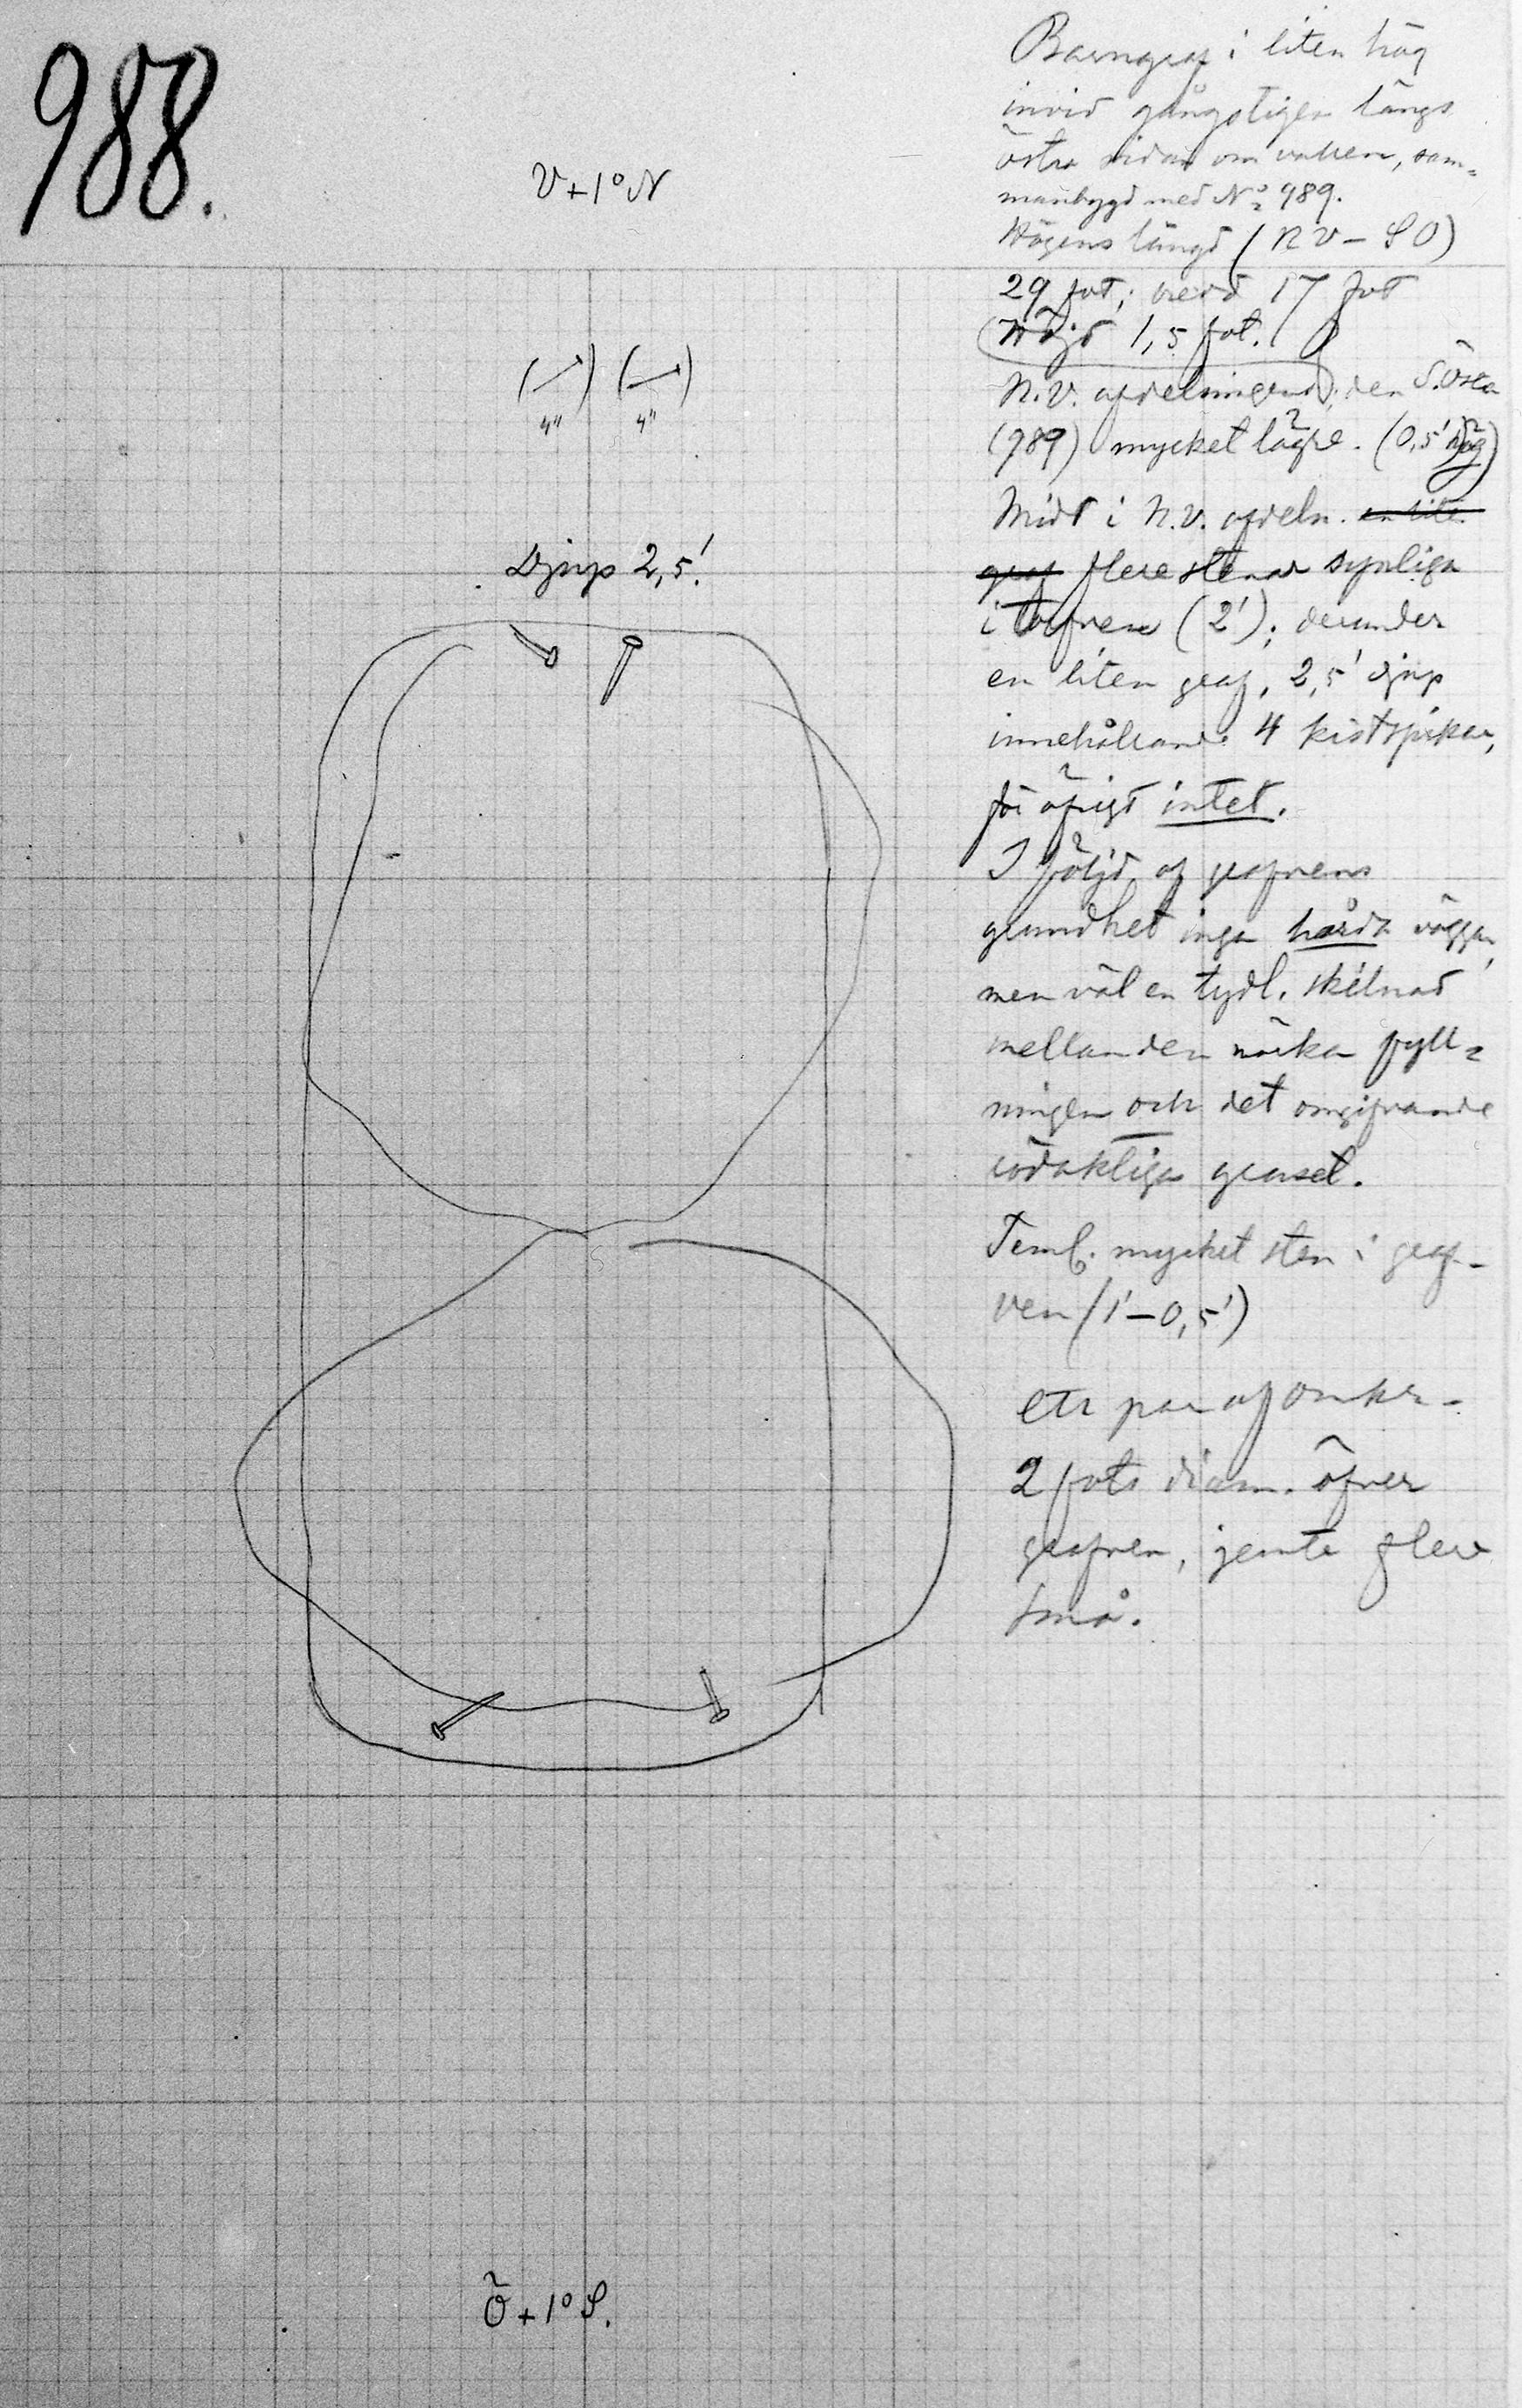 988.
V + 1° N
(  ) (  )
4" 4"
Djup 2,5'.
Barngraf i liten hög
invid gångstigen längs
östra sidan om vallen, sam-
manbygd med No 989.
Högens längd (NV – SO)
29 fot; bredd 17 fot
Höjd 1,5 fot.
N.V. afdelningens; den S. Östra
(989) mycket lägre. (0,5' hög)
Midt i N.V. afdeln. en lite.
graf flere stenar synliga
i torfven (2'); derunder
en liten graf, 2,5' djup
innehållande 4 kistspikar,
för öfrigt intet.
I följd af grafvens
grundhet inga hårda väggar,
men väl en tydl. skilnad
mellan den mörka fyll-
ningen och det omgifvande
rödaktiga gruset.
Teml. mycket sten i graf-
ven (1'–0,5')
ett par af omkr.
2 fots diam. öfver
grafven, jemte flere
små.
Ö + 1° S.